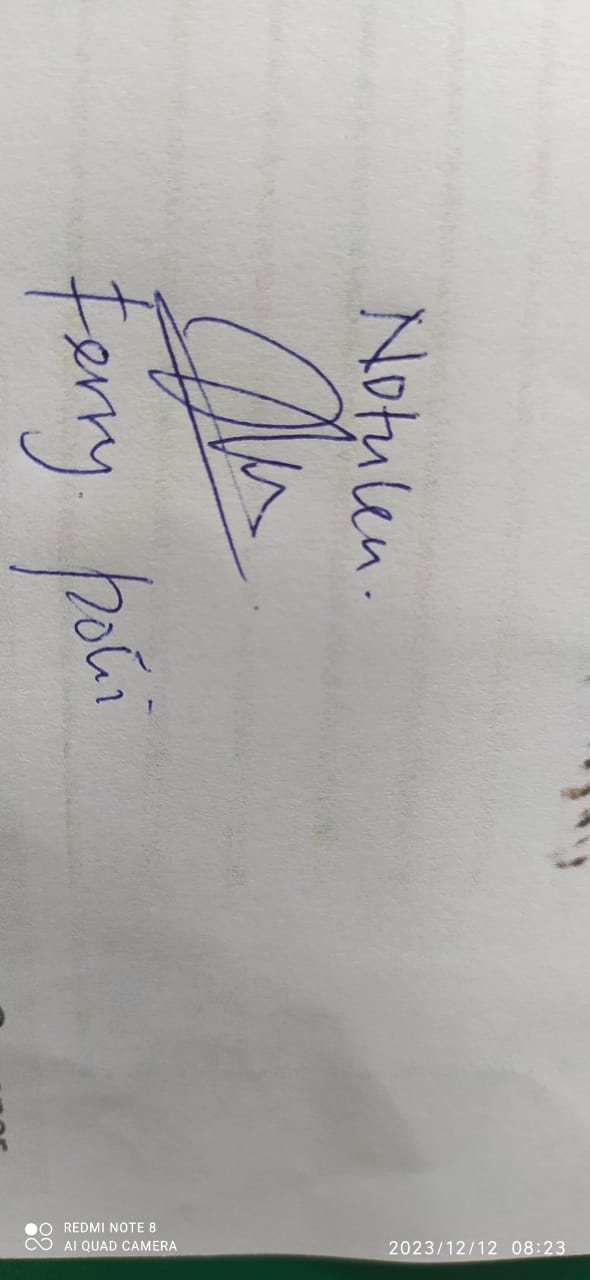 Notulen.
Ferry. poli
REDMI NOTE 8
AI QUAD CAMERA
2023/12/12 08:23